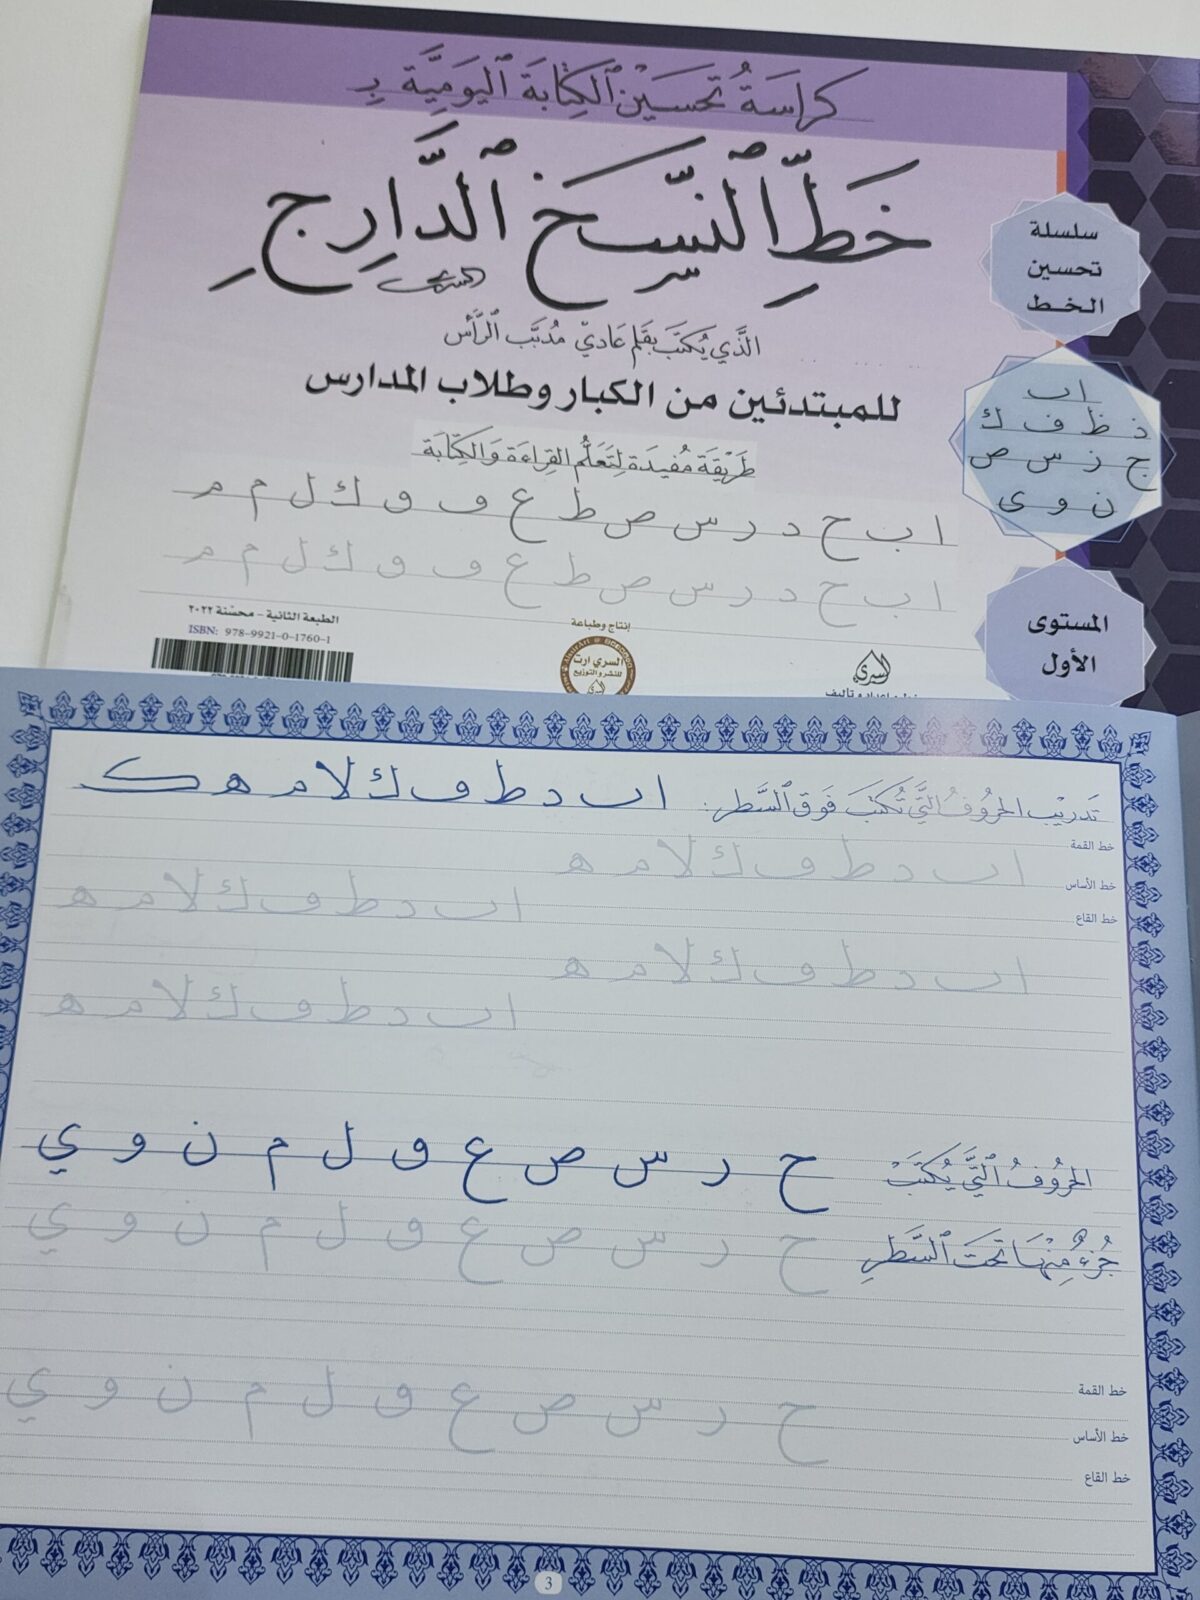 كراسةُ تحسين ٱلكِتابة ٱليَوميَّة بِـ
خَطِّ ٱلنَّسِخ ٱلدَّارِج
السري
الذَّي يُكتَب بقَلم عَاديْ مُدبَّب ٱلرَّأس
للمبتدئين من الكبار وطلاب المدارس
طَريْقَة مُفيدَة لِتَعَلُّم القِراءَة وَالكِتَابَة
ا ب ح د ر س ص ط ع ف ق ك ل م م
ا ب ح د ر س ص ط ع ف ق ك ل م م
سلسلة
تحسين
الخط
ا ب
ذ ظ ف ك
ج ز س ص
ن و ى
المستوى
الأول
الطبعة الثانية - محسّنة ٢٠٢٢
ISBN: 978-9921-0-1760-1
إنتاج وطباعة
السري ارت
للنشر والتوزيع
السري
تَدريْب الحرُوفُ التَّي تُكتَب فَوق ٱلسَّطر: ا ب د ط ف ك لا م ه ك
خط القمة
ا ب د ط ف ك لا م ه
خط الأساس
ا ب د ط ف ك لا م ه
خط القاع
ا ب د ط ف ك لا م ه
ا ب د ط ف ك لا م ه
الحرُوفُ ٱلتَّي يُكتَبْ ح ر س ص ع ق ل م ن و ي
جُزءٌ مِنْهَا تَحتَ ٱلسَّطرِ ح ر س ص ع ق ل م ن و ي
خط القمة
ح ر س ص ع ق ل م ن و ي
خط الأساس
خط القاع
3